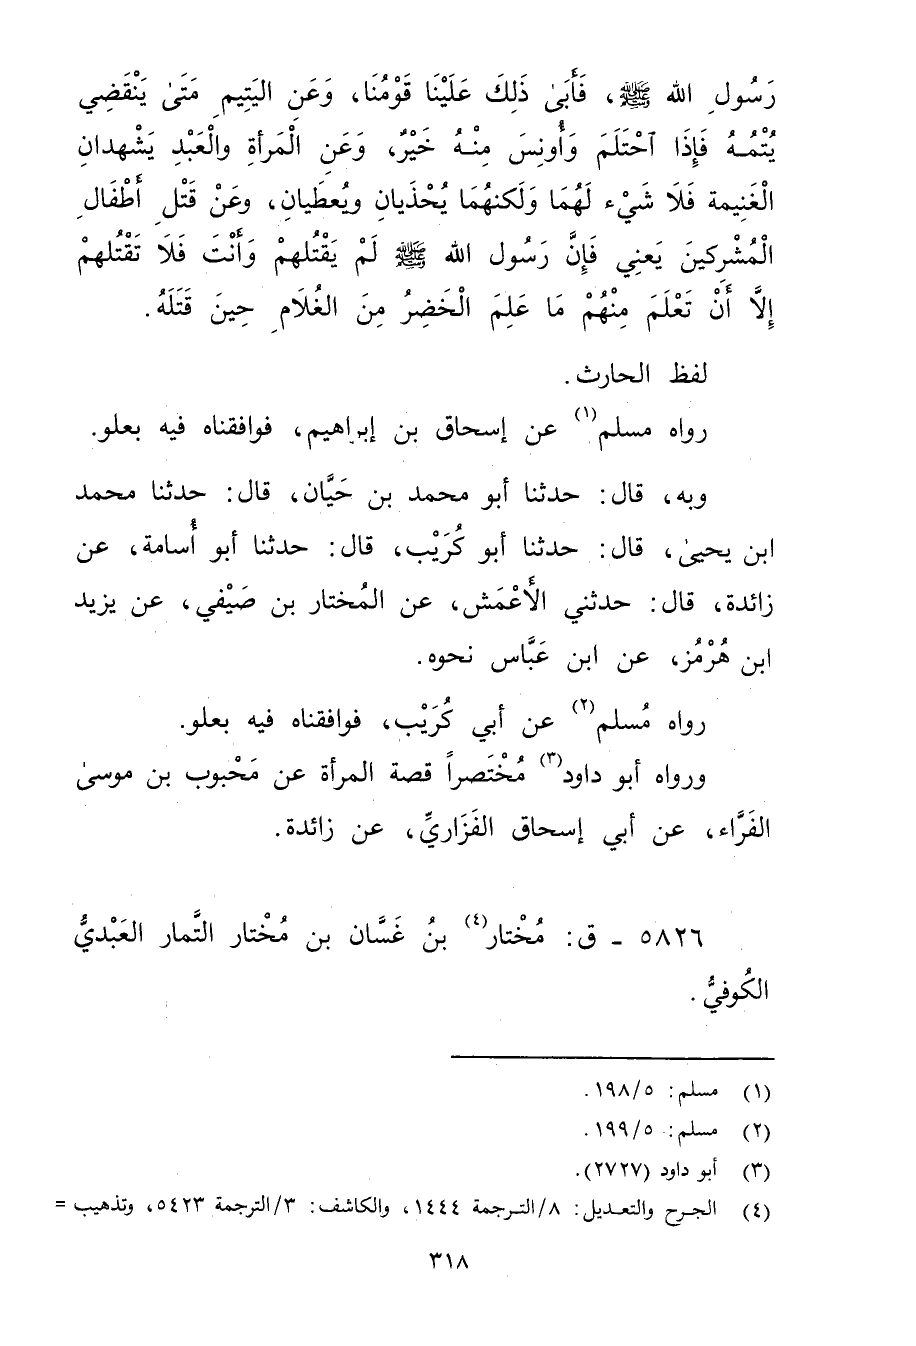 رَسُولِ الله ﷺ، فَأَبَىٰ ذَلِكَ عَلَيْنَا قَوْمُنَا، وَعَنِ اليَتِيمِ مَتَىٰ يَنْقَضِي
يُتْمُـهُ فَإِذَا ٱحْتَلَمَ وَأُونِسَ مِنْـهُ خَيْرٌ، وَعَنِ الْمَرأةِ والْعَبْدِ يَشْهدانِ
الْغَنِيمة فَلَا شَيْء لَهُمَا وَلَكنهُمَا يُحْذَيانِ ويُعطَيانِ، وعَنْ قَتْلِ أَطْفَالِ
الْمُشْرِكينَ يَعنِي فَإِنَّ رَسُول الله ﷺ لَمْ يَقْتُلهمْ وَأَنْتَ فَلَا تَقْتُلهمْ
إِلَّا أَنْ تَعْلَمَ مِنْهُمْ مَا عَلِمَ الْخَضِرُ مِنَ الغُلَامِ حِينَ قَتَلَهُ.
لفظ الحارث.
رواه مسلم(١) عن إسحاق بن إبراهيم، فوافقناه فيه بعلو.
وبه، قال: حدثنا أبو محمد بن حَيَّان، قال: حدثنا محمد
ابن يحيىٰ، قال: حدثنا أبو كُرَيْب، قال: حدثنا أبو أُسامة، عن
زائدة، قال: حدثني الأَعْمَش، عن المُختار بن صَيْفي، عن يزيد
ابن هُرْمُز، عن ابن عَبَّاس نحوه.
رواه مُسلم(٢) عن أبي كُرَيْب، فوافقناه فيه بعلو.
ورواه أبو داود(٣) مُخْتَصراً قصة المرأة عن مَحْبوب بن موسىٰ
الفَرَّاء، عن أبي إسحاق الفَزَاريِّ، عن زائدة.
٥٨٢٦ ـ ق: مُخْتار(٤) بنُ غَسَّان بن مُخْتار التَّمار العَبْديُّ
الكُوفيُّ.
(١) مسلم: ١٩٨/٥.
(٢) مسلم: ١٩٩/٥.
(٣) أبو داود (٢٧٢٧).
(٤) الجـرح والتعـديل: ٨/التـرجمة ١٤٤٤، والكاشف: ٣/الترجمة ٥٤٢٣، وتذهيب =
٣١٨